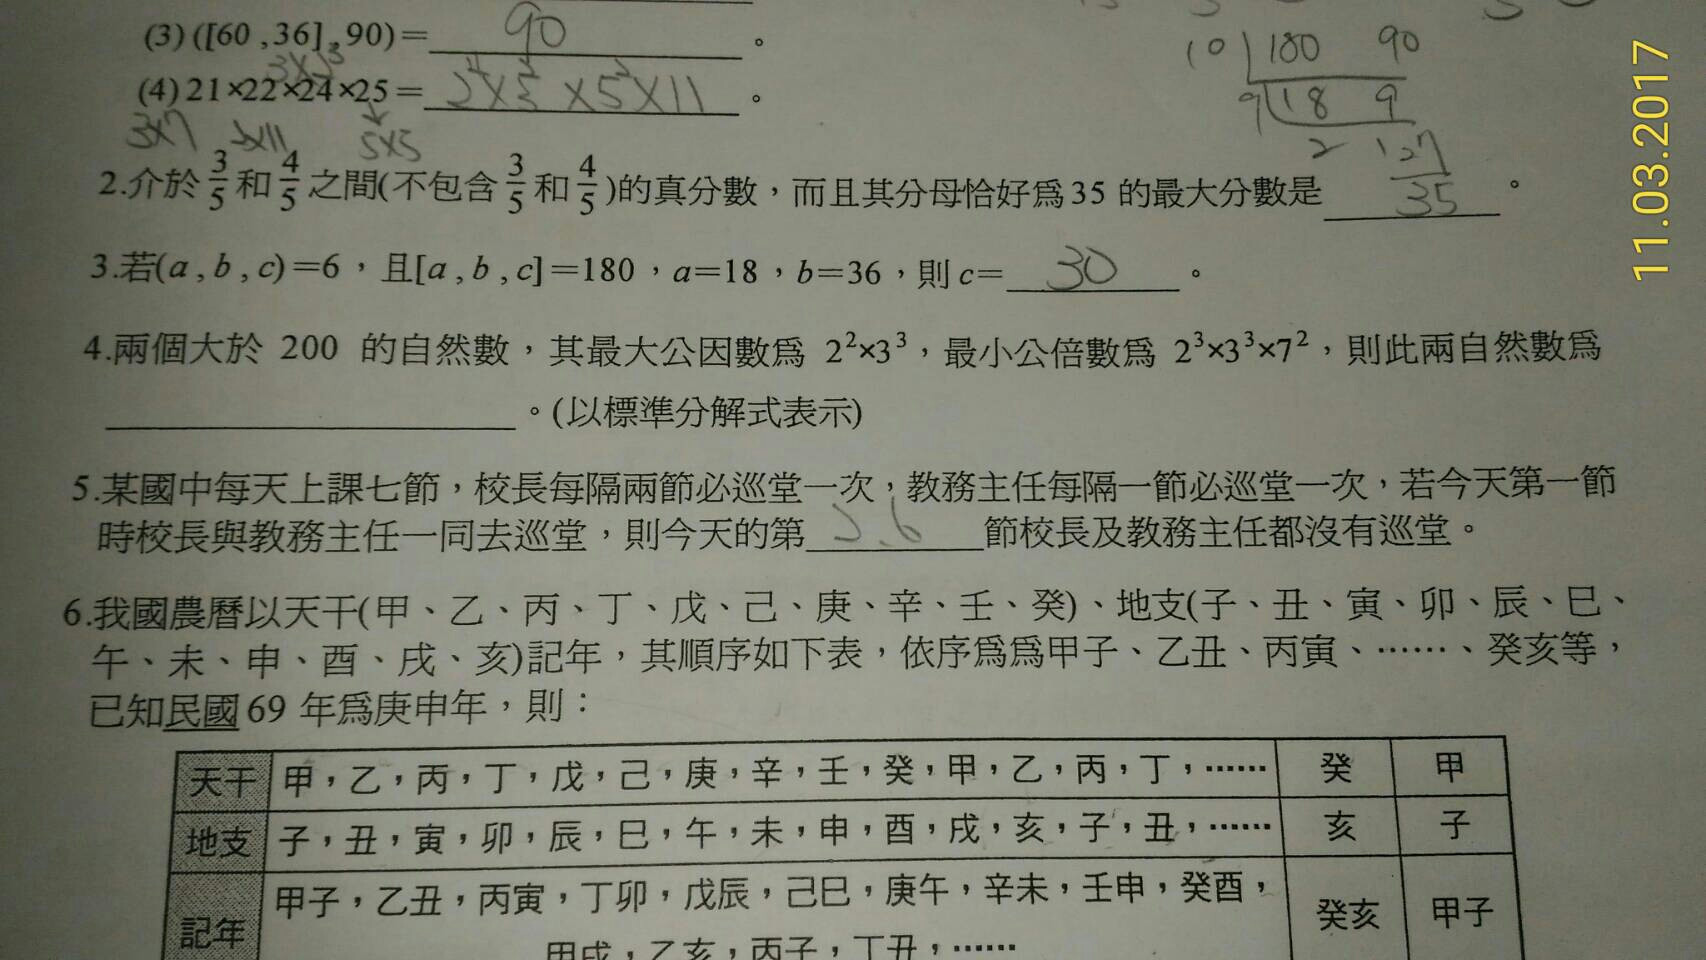 (3) ([60 , 36] , 90)＝90。
10 180 90
(4) 21×22×24×25＝2⁴×3²×5²×11。
9 18 9
3×7 2×11 5×5
2 1
2.介於3/5和4/5之間(不包含3/5和4/5)的真分數，而且其分母恰好爲35 的最大分數是27/35。
3.若(a , b , c)＝6，且[a , b , c]＝180，a＝18，b＝36，則 c＝30。
4.兩個大於 200 的自然數，其最大公因數爲 2²×3³，最小公倍數爲 2³×3³×7²，則此兩自然數爲
。(以標準分解式表示)
5.某國中每天上課七節，校長每隔兩節必巡堂一次，教務主任每隔一節必巡堂一次，若今天第一節
時校長與教務主任一同去巡堂，則今天的第2.6節校長及教務主任都沒有巡堂。
6.我國農曆以天干(甲、乙、丙、丁、戊、己、庚、辛、壬、癸)、地支(子、丑、寅、卯、辰、巳、
午、未、申、酉、戌、亥)記年，其順序如下表，依序爲爲甲子、乙丑、丙寅、……、癸亥等，
已知民國 69 年爲庚申年，則：
天干 甲，乙，丙，丁，戊，己，庚，辛，壬，癸，甲，乙，丙，丁，…… 癸 甲
地支 子，丑，寅，卯，辰，巳，午，未，申，酉，戌，亥，子，丑，…… 亥 子
記年 甲子，乙丑，丙寅，丁卯，戊辰，己巳，庚午，辛未，壬申，癸酉， 癸亥 甲子
甲戌，乙亥，丙子，丁丑，……
11.03.2017